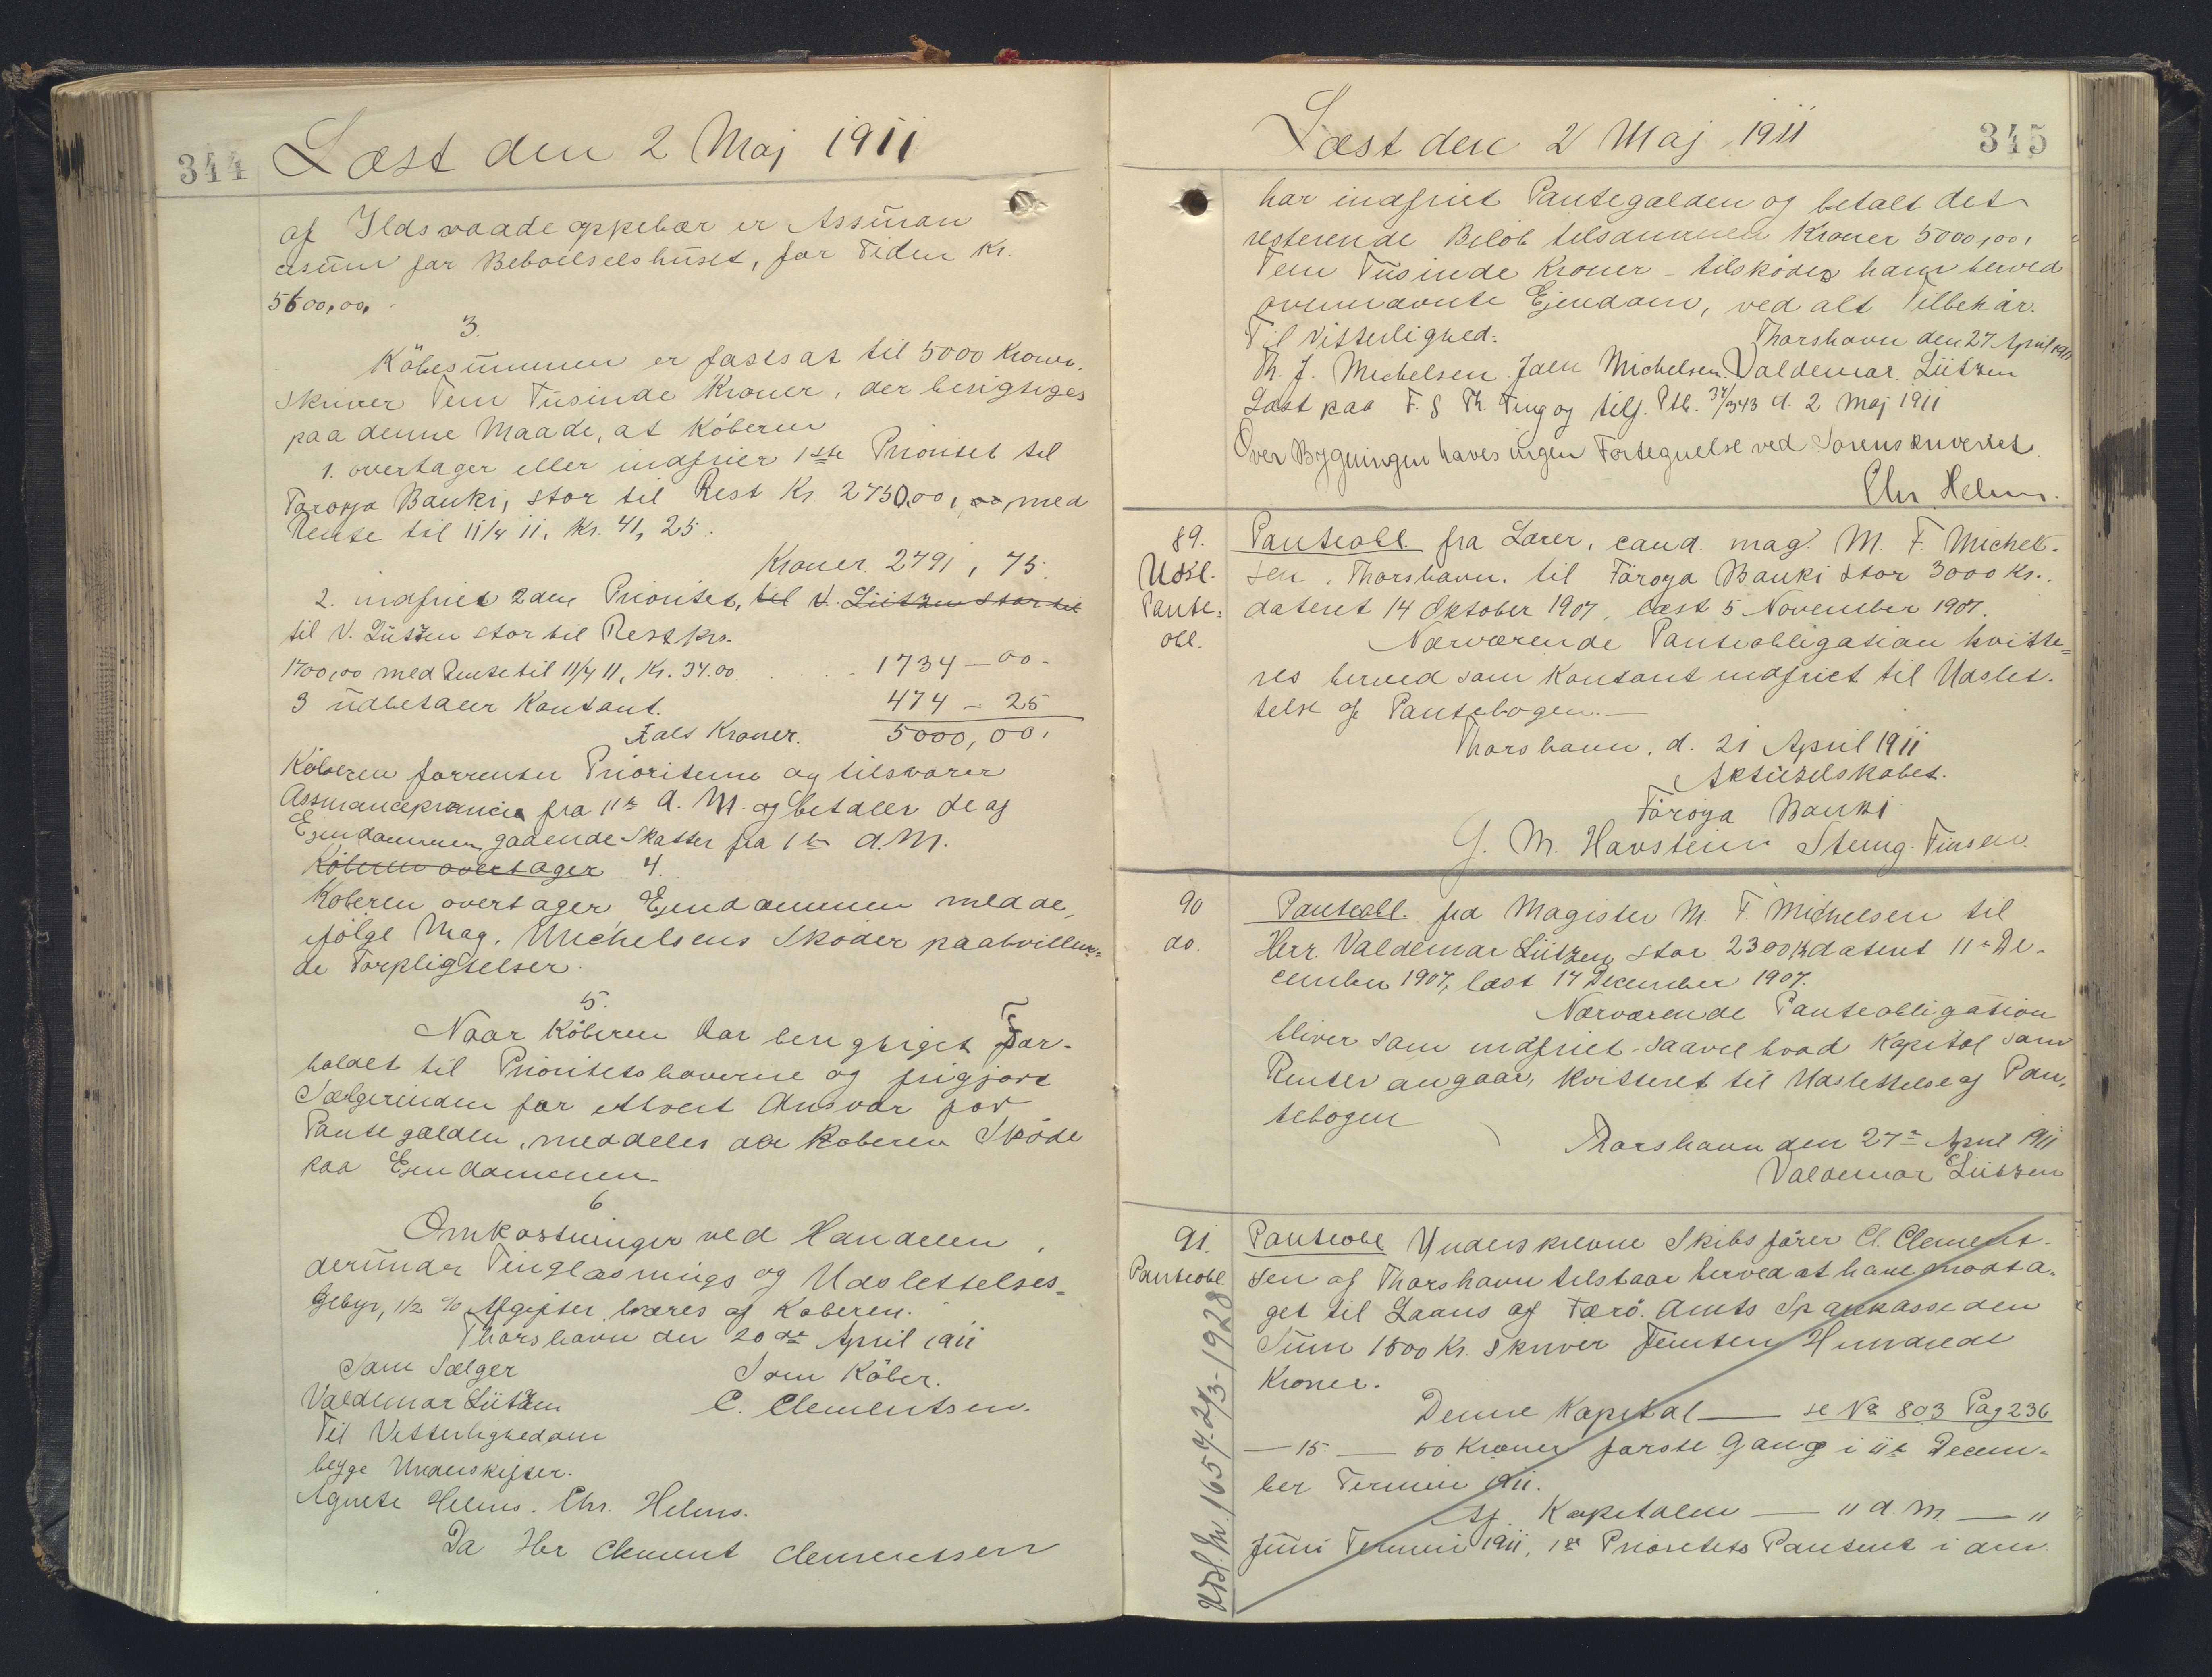 344
Læst den 2 Maj 1911
af Ildsvaade oppebær er Assuran
cesum for Beboelseshuset, for Tiden Kr.
5600,00,
3.
Köbesummen er fastsat til 5000 Kroner.
skriver Fem Tusinde Kroner, der berigtiges
paa denne Maade, at Köberen
1. overtager eller indfrier 1ste Prioritet til
Föroya Banki, stor til Rest Kr. 2750,00, med
Rente til 11/4 11, Kr. 41,25.
Kroner 2791,75.
2. indfriet 2den Prioritet, til V. Lützen stor til
til V. Lützen stor til Rest Krs.
1700,00 med Rente til 11/4 11, Kr. 34.00 . . . . 1734 – 00 -
3 udbetaler Kontant. 474 – 25
Ials Kroner. 5000,00.
Köberen forrenter Prioriteterne og tilsvarer
Assurancepræmie fra 11te d. M. og betaler de af
Ejendommen gaaende Skatter fra 1te d. M.
Köberen overtager 4.
Köberen overtager Ejendommen med de,
ifölge Mag. Michelsens Sköder paahvilen=
de Forpligtelser.
5.
Naar Köberen har berigtiget For-
holdet til Prioritetshaverne og frigjort
Sælgerinden for ethvert Ansvar for
Pantegælden, meddeles der Köberen Sköde
paa Ejendommen.
6
Omkostninger ved Handelen,
derunder Tinglæsnings og Udslettelses=
Gebyr, 1/2 % Afgifter, bæres af Köberen.
Thorshavn den 20de April 1911
Som Sælger Som Köber.
Valdemar Lützen C. Clementsen.
Til Vitterlighed om
begge Underskrifter.
Agnete Helms. Chr. Helms.
Da Hr Clement Clementsen
Læst den 2 Maj 1911
345
har indfriet Pantegælden og betalt det
resterende Belöb tilsammen Kroner 5000,00,
Fem Tusinde Kroner – tilskødes ham herved
ovennævnte Ejendom, ved alt Tilbehör.
Til Vitterlighed: Thorshavn den 27 April 1911
Th. J. Michelsen. Joen Michelsen. Valdemar Lützen
Læst paa F. & Th. Ting og tilf. Ptb. 34/343 d. 2 Maj 1911
Over Bygningen haves ingen Fortegnelse ved Sorenskriveriet
Chr Helms.
89. Panteobl. fra Lærer, cand. mag. M. F. Michel-
Udsl. sen, Thorshavn. til Föroya Banki stor 3000 Kr.,
Pante= dateret 14 Oktober 1907, læst 5 November 1907.
obl. Nærværende Panteobligation kvitte=
res herved som kontant indfriet til Udslet-
telse af Pantebogen.—
Thorshavn, d. 21 April 1911
Aktieselskabet.
Föroya Banki
G. M. Havsteen Steing. Finsen.
90 Panteobl. fra Magister M. F. Michelsen til
do. Herr. Valdemar Lützen stor 2300 Kr dateret 11te De-
cember 1907, læst 17 December 1907.
Nærværende Panteobligation
bliver som indfriet - saavel hvad Kapital som
Renter angaar, kvitteret til Udslettelse af Pan-
tebogen
Thorshavn den 27de April 1911
Valdemar Lützen
91. Panteobl Underskrevne Skibsförer Cl. Clement-
Panteobl. sen af Thorshavn tilstaar herved at have modta-
get til Laans af Færö Amts Sparekasse den
Sum 1500 Kr. skriver Femten Hundrede
Kroner.
Denne Kapital —— se No 803 Pag 236
— 15 — 50 Kroner første Gang i 11te Decem-
ber Termin 1911.
Af Kapitalen —— 11 d. M. — 11
Juni Termin 1911, 1ste Prioritets Panteret i den
Udsl. Nr. 1657-2/3-1928